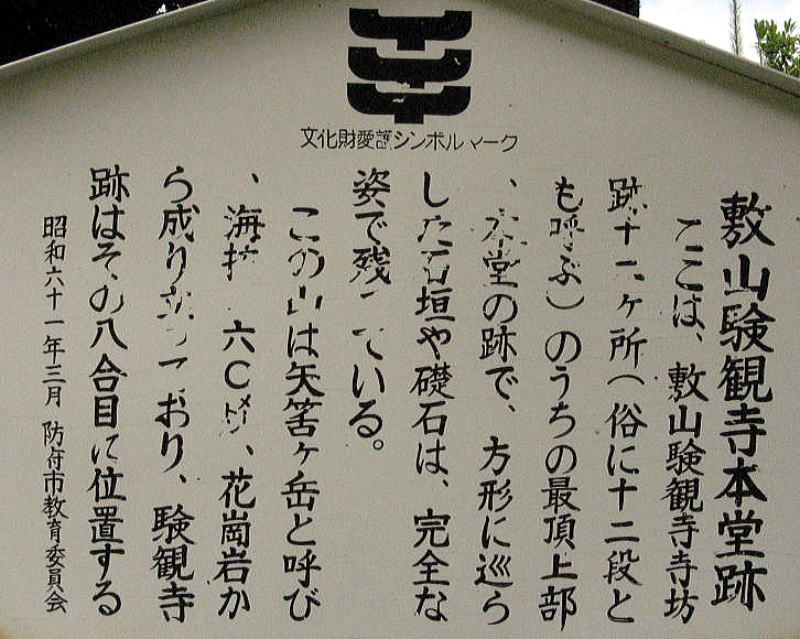 文化財愛護シンボルマーク
敷山験観寺本堂跡
ここは、敷山験観寺寺坊
跡十二ヶ所(俗に十二段と
も呼ぶ)のうちの最頂上部
、本堂の跡で、方形に巡ら
した石垣や礎石は、完全な
姿で残っている。
この山は矢筈ヶ岳と呼び
、海抜 六〇メートル、花崗岩か
ら成り立っており、験観寺
跡はその八合目に位置する
昭和六十一年三月 防府市教育委員会